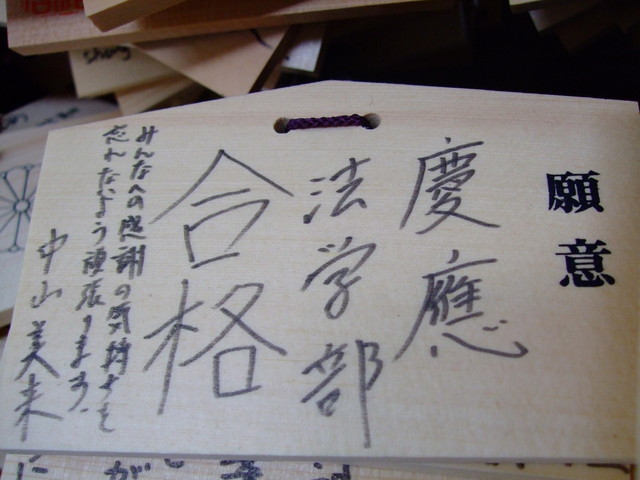 願意
慶應
法学部
合格
みんなへの感謝の気持ちを
忘れないよう頑張ります。
中山美来